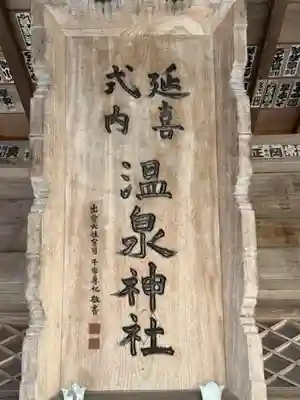 延喜
式内
温泉神社
出雲大社宮司 千家尊祀 敬書